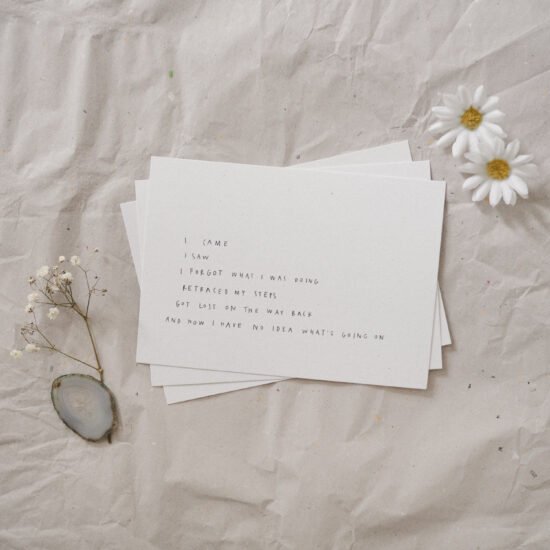 I CAME
I SAW
I FORGOT WHAT I WAS DOING
RETRACED MY STEPS
GOT LOST ON THE WAY BACK
AND NOW I HAVE NO IDEA WHAT'S GOING ON